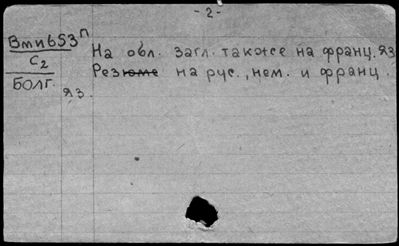 - 2 -
Вми653п
С2
БОЛГ.
яз.
На обл. загл. также на франц. яз
Резюме на рус., нем. и франц.